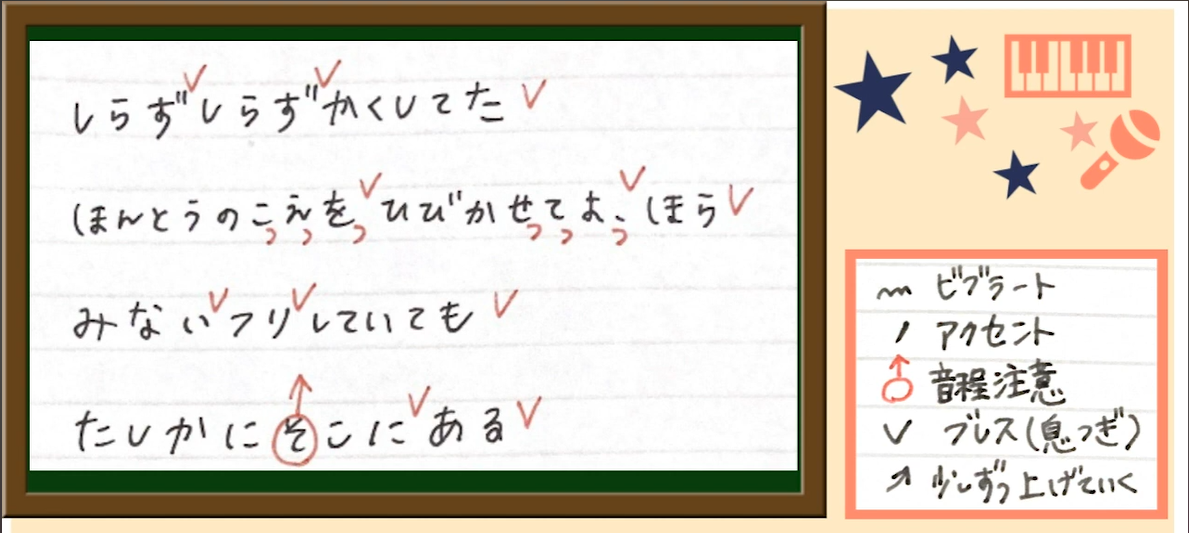 しらずしらずかくしてた
ほんとうのこえをひびかせてよ、ほら
みないフリしていても
たしかにそこにある
ビブラート
アクセント
音程注意
ブレス(息つぎ)
少しずつ上げていく